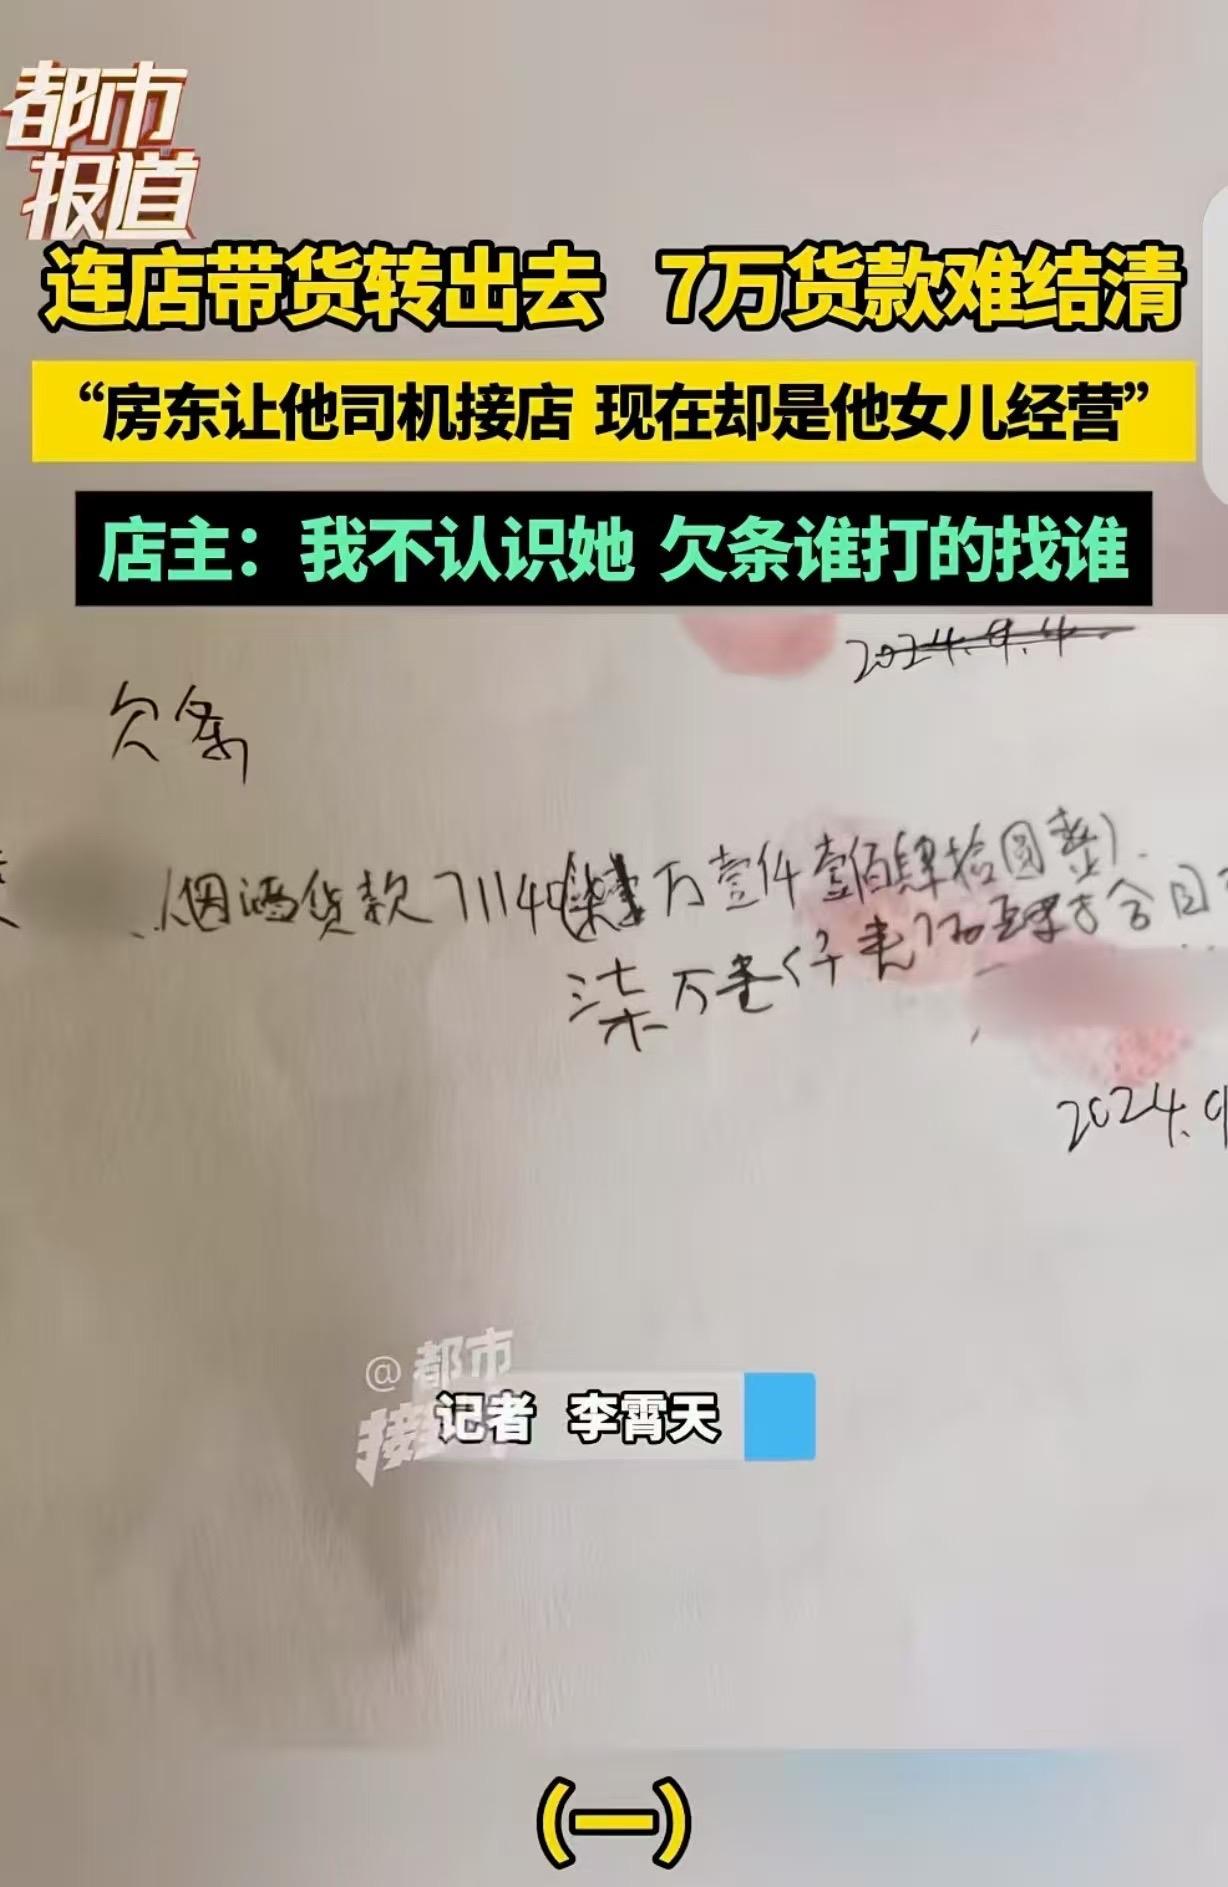 都市
报道
连店带货转出去 7万货款难结清
“房东让他司机接店 现在却是他女儿经营”
店主：我不认识她 欠条谁打的找谁
2024.9.4
欠条
烟酒货款71140 万壹仟壹佰肆拾圆整）.
柒万壹仟壹佰肆拾
2024.9
@都市
记者 李霄天
（一）